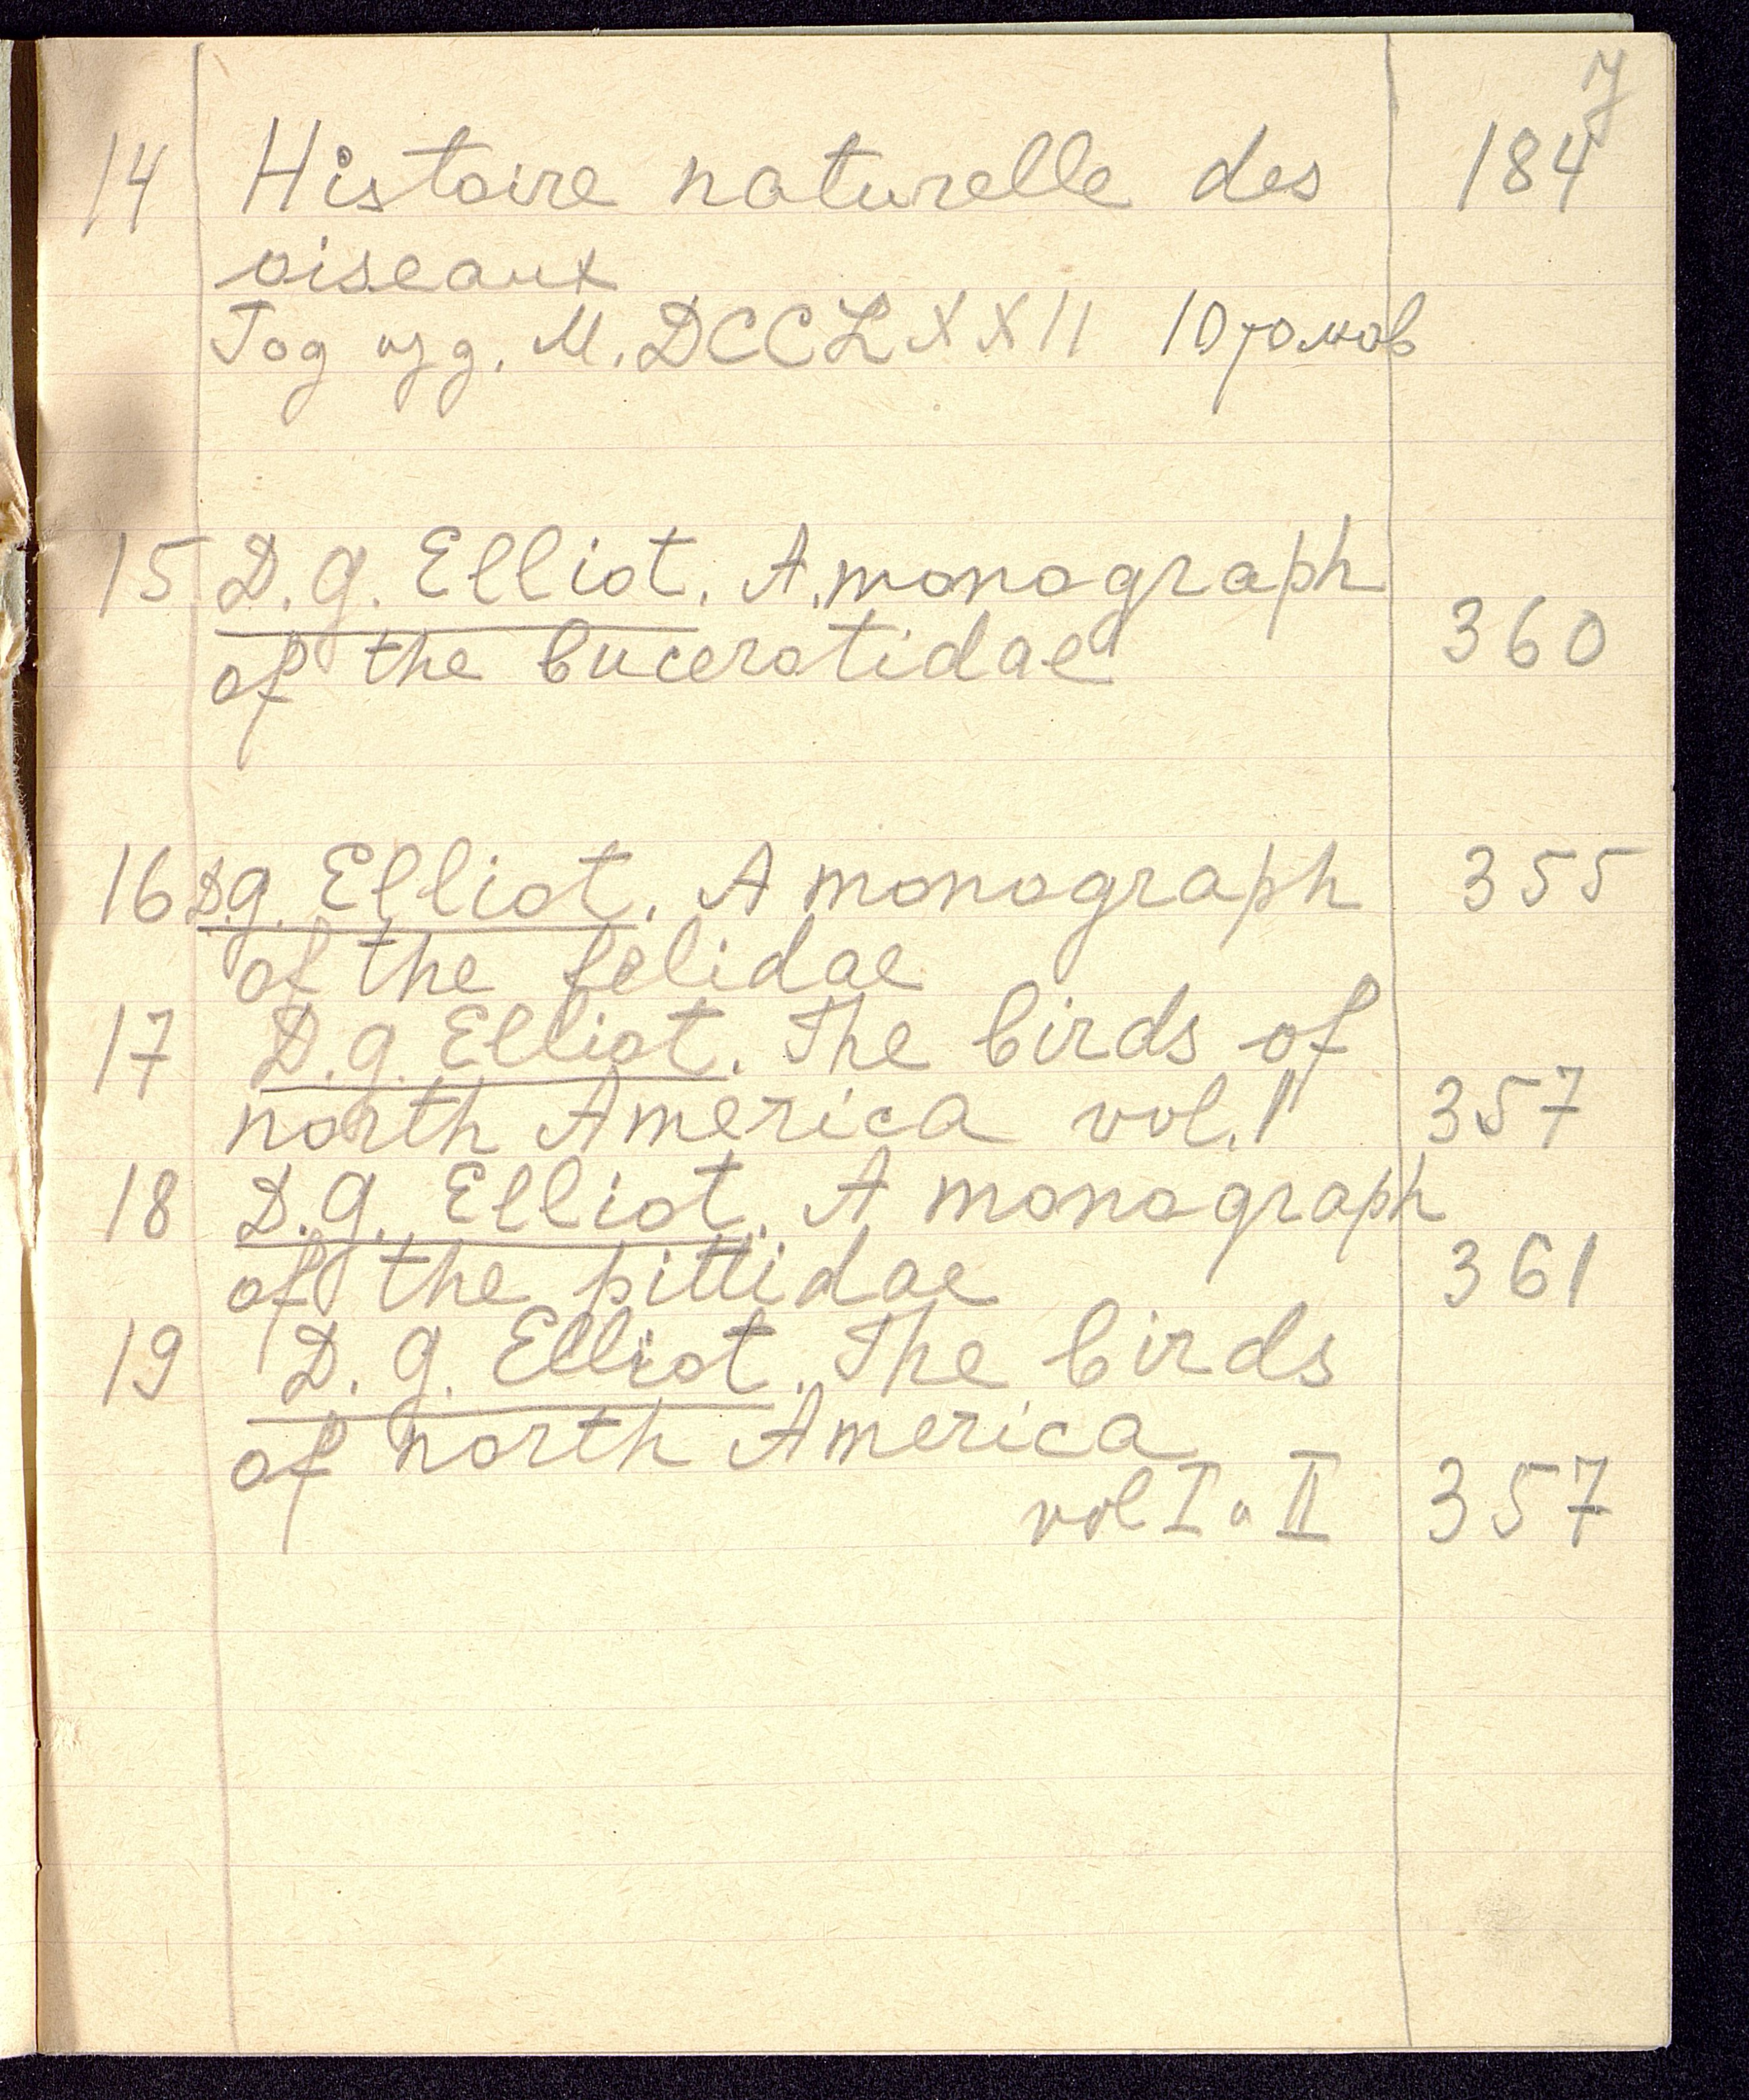 7
14 Histoire naturelle des 184
oiseaux
Год изд. M.DCCLXXII 10 томов
15 D. G. Elliot. A. monograph
of the bucerotidae 360
16 D.G. Elliot. A monograph 355
of the felidae
17 D. G. Elliot. The birds of
north America vol. I 357
18 D. G. Elliot. A monograph
of the pittidae 361
19 D. G. Elliot. The birds
of north America
vol I и II 357